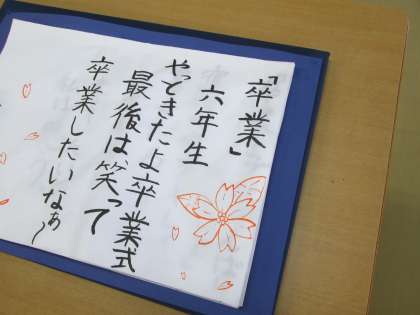 「卒業」
六年生
やってきたよ卒業式
最後は、笑って
卒業したいなぁ〜